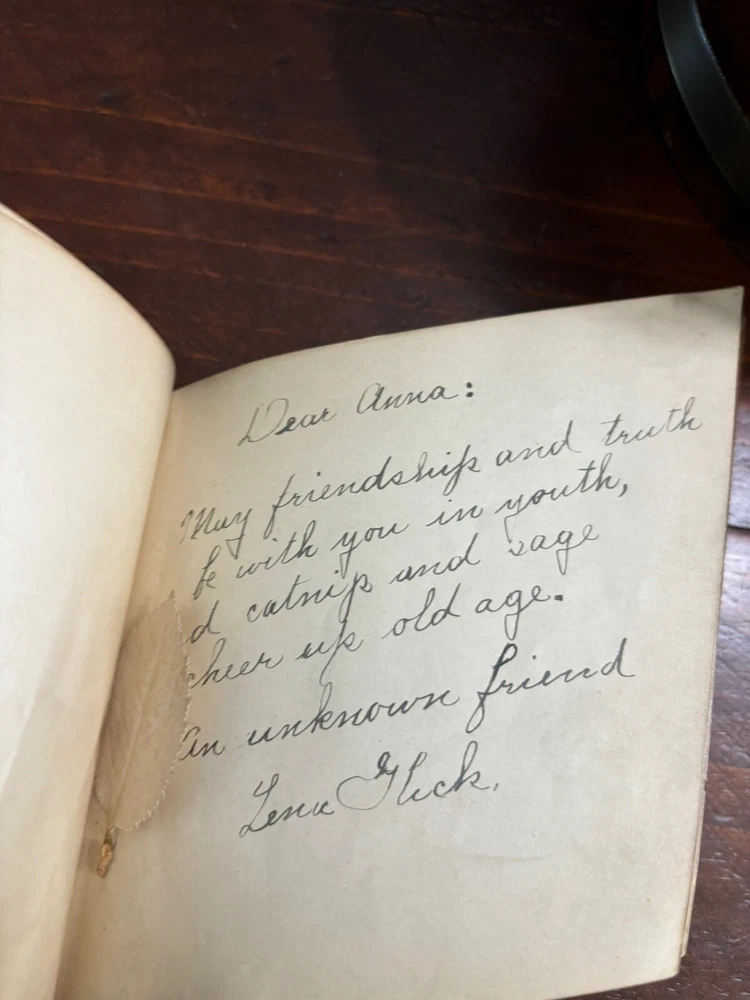 Dear Anna:
May friendship and truth
be with you in youth,
d catnip and sage
cheer up old age.
An unknown friend
Lena Glick.